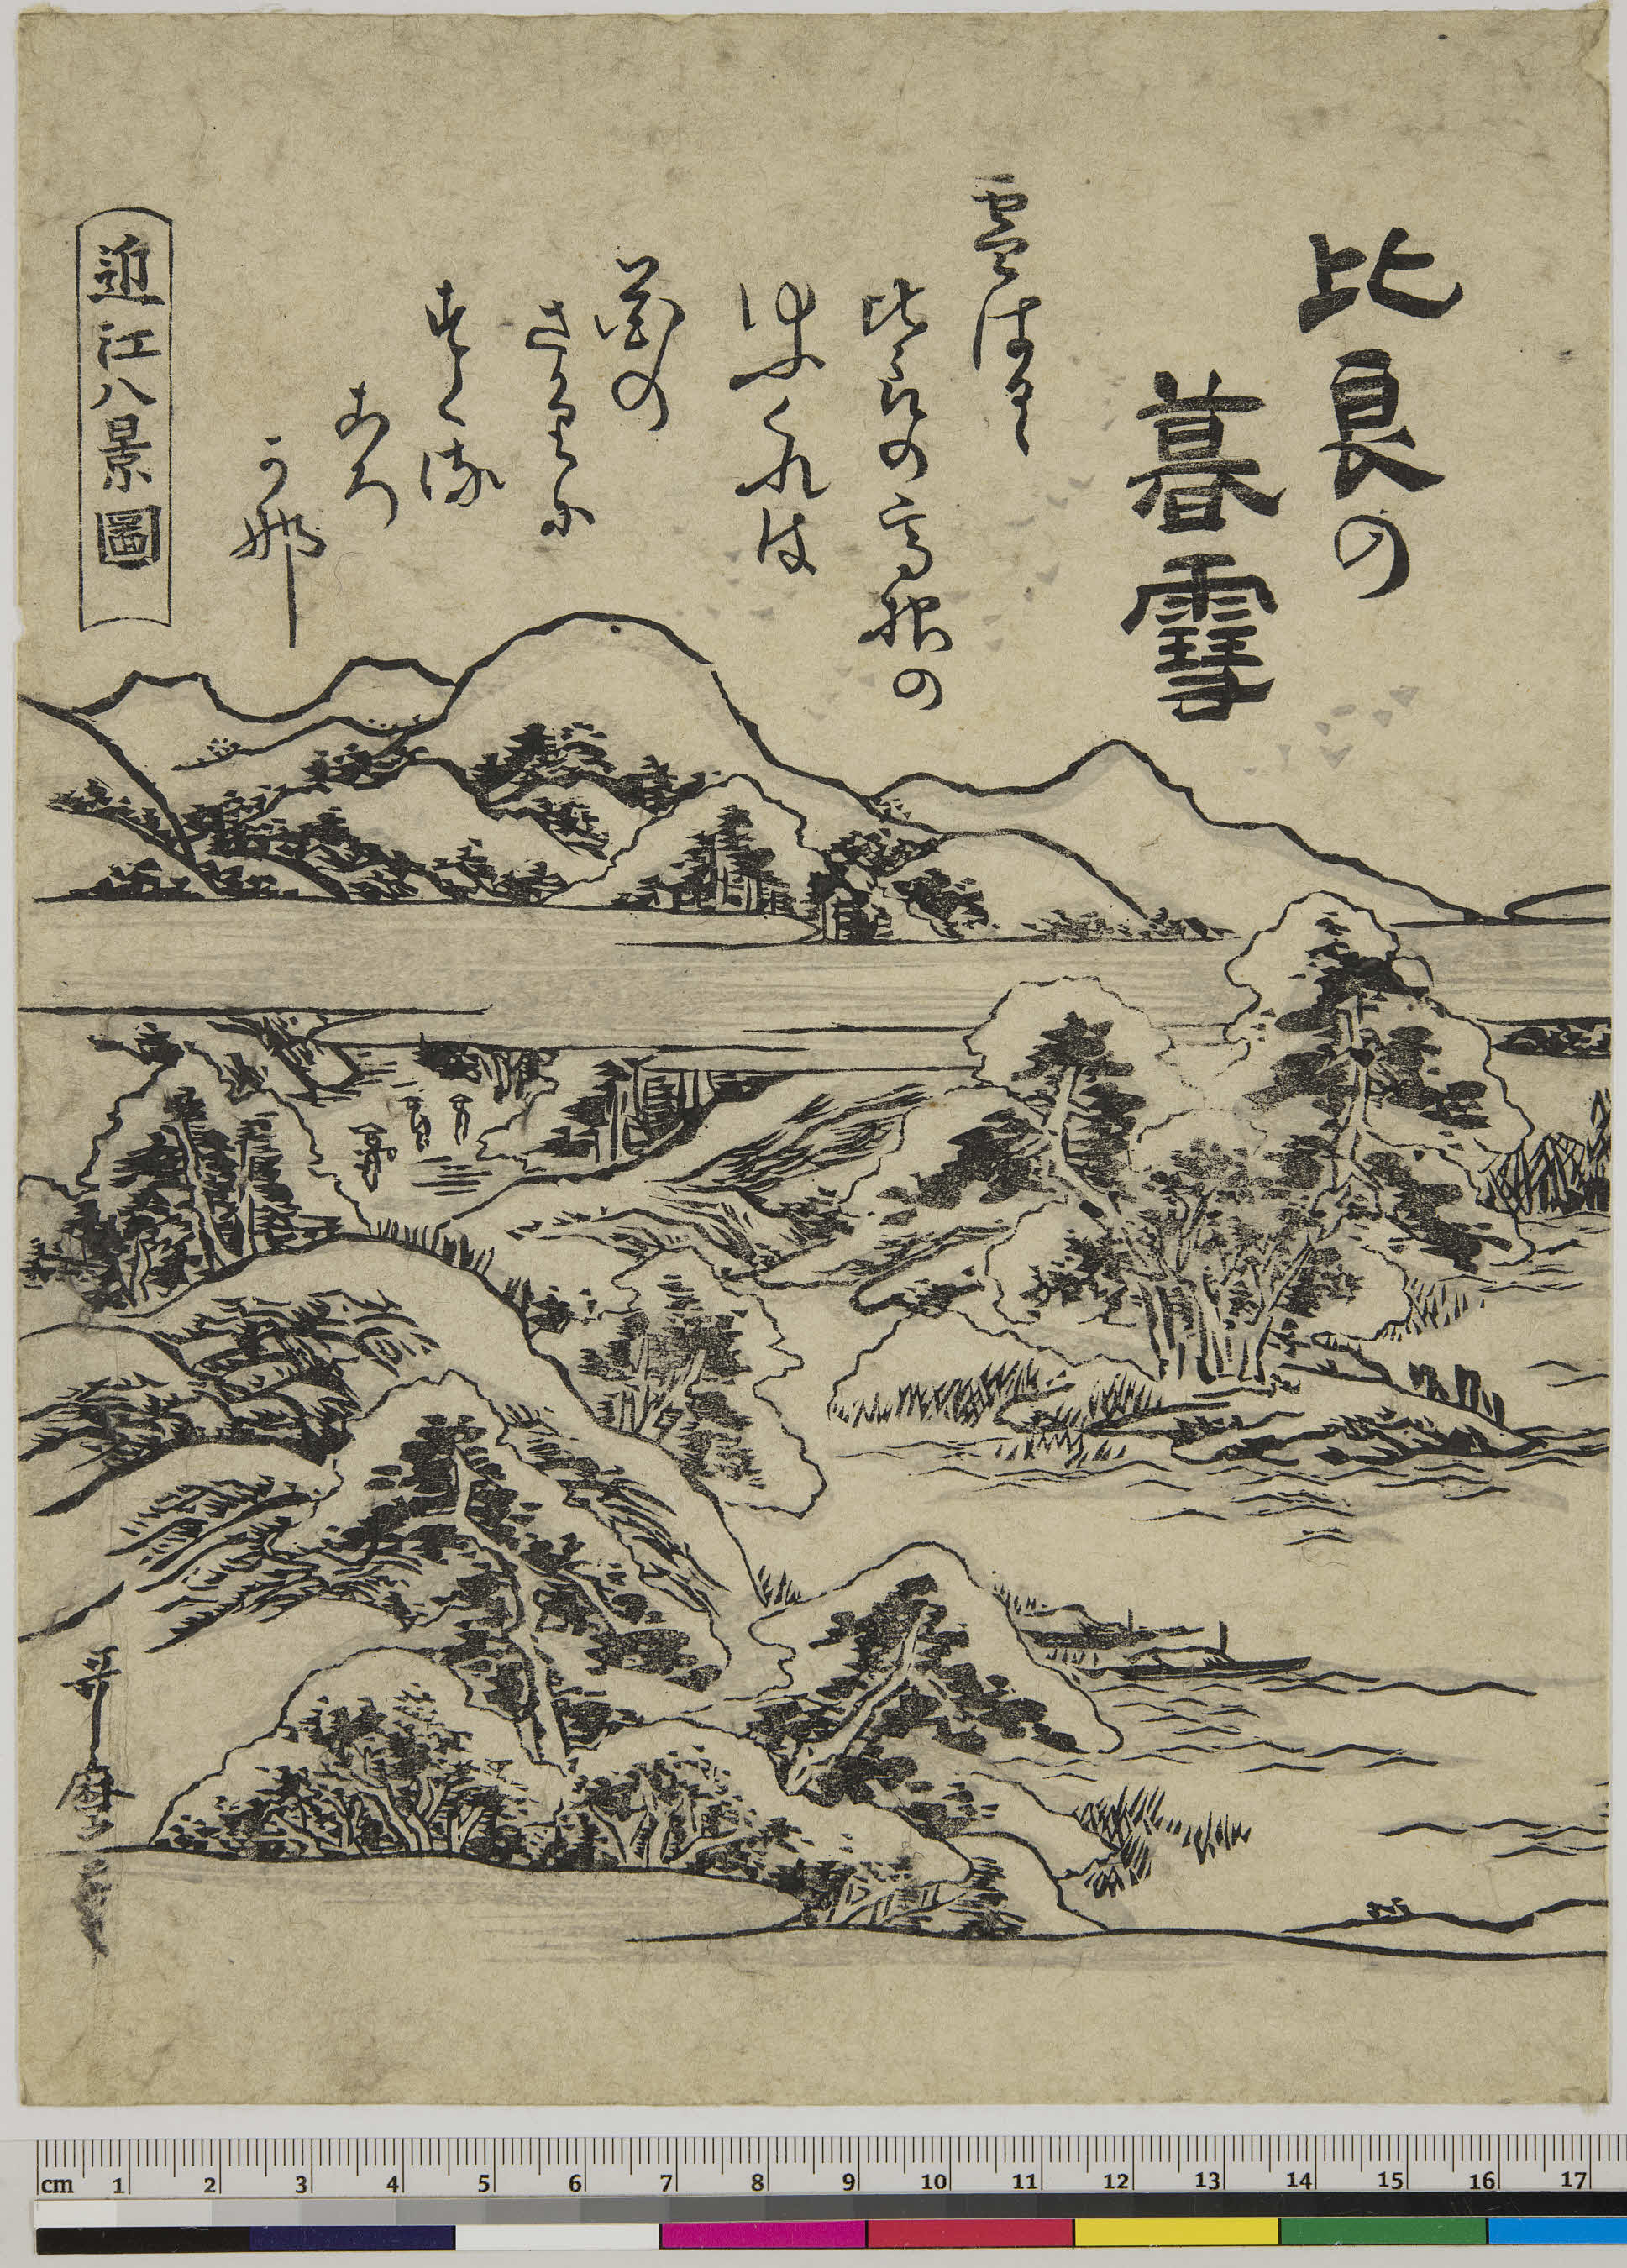 比良の
暮雪
雪はるゝ
比良の高根の
夕くれは
花の
さかりに
すくる
ころ
かな
近江八景圖
哥麿筆
cm 1 2 3 4 5 6 7 8 9 10 11 12 13 14 15 16 17